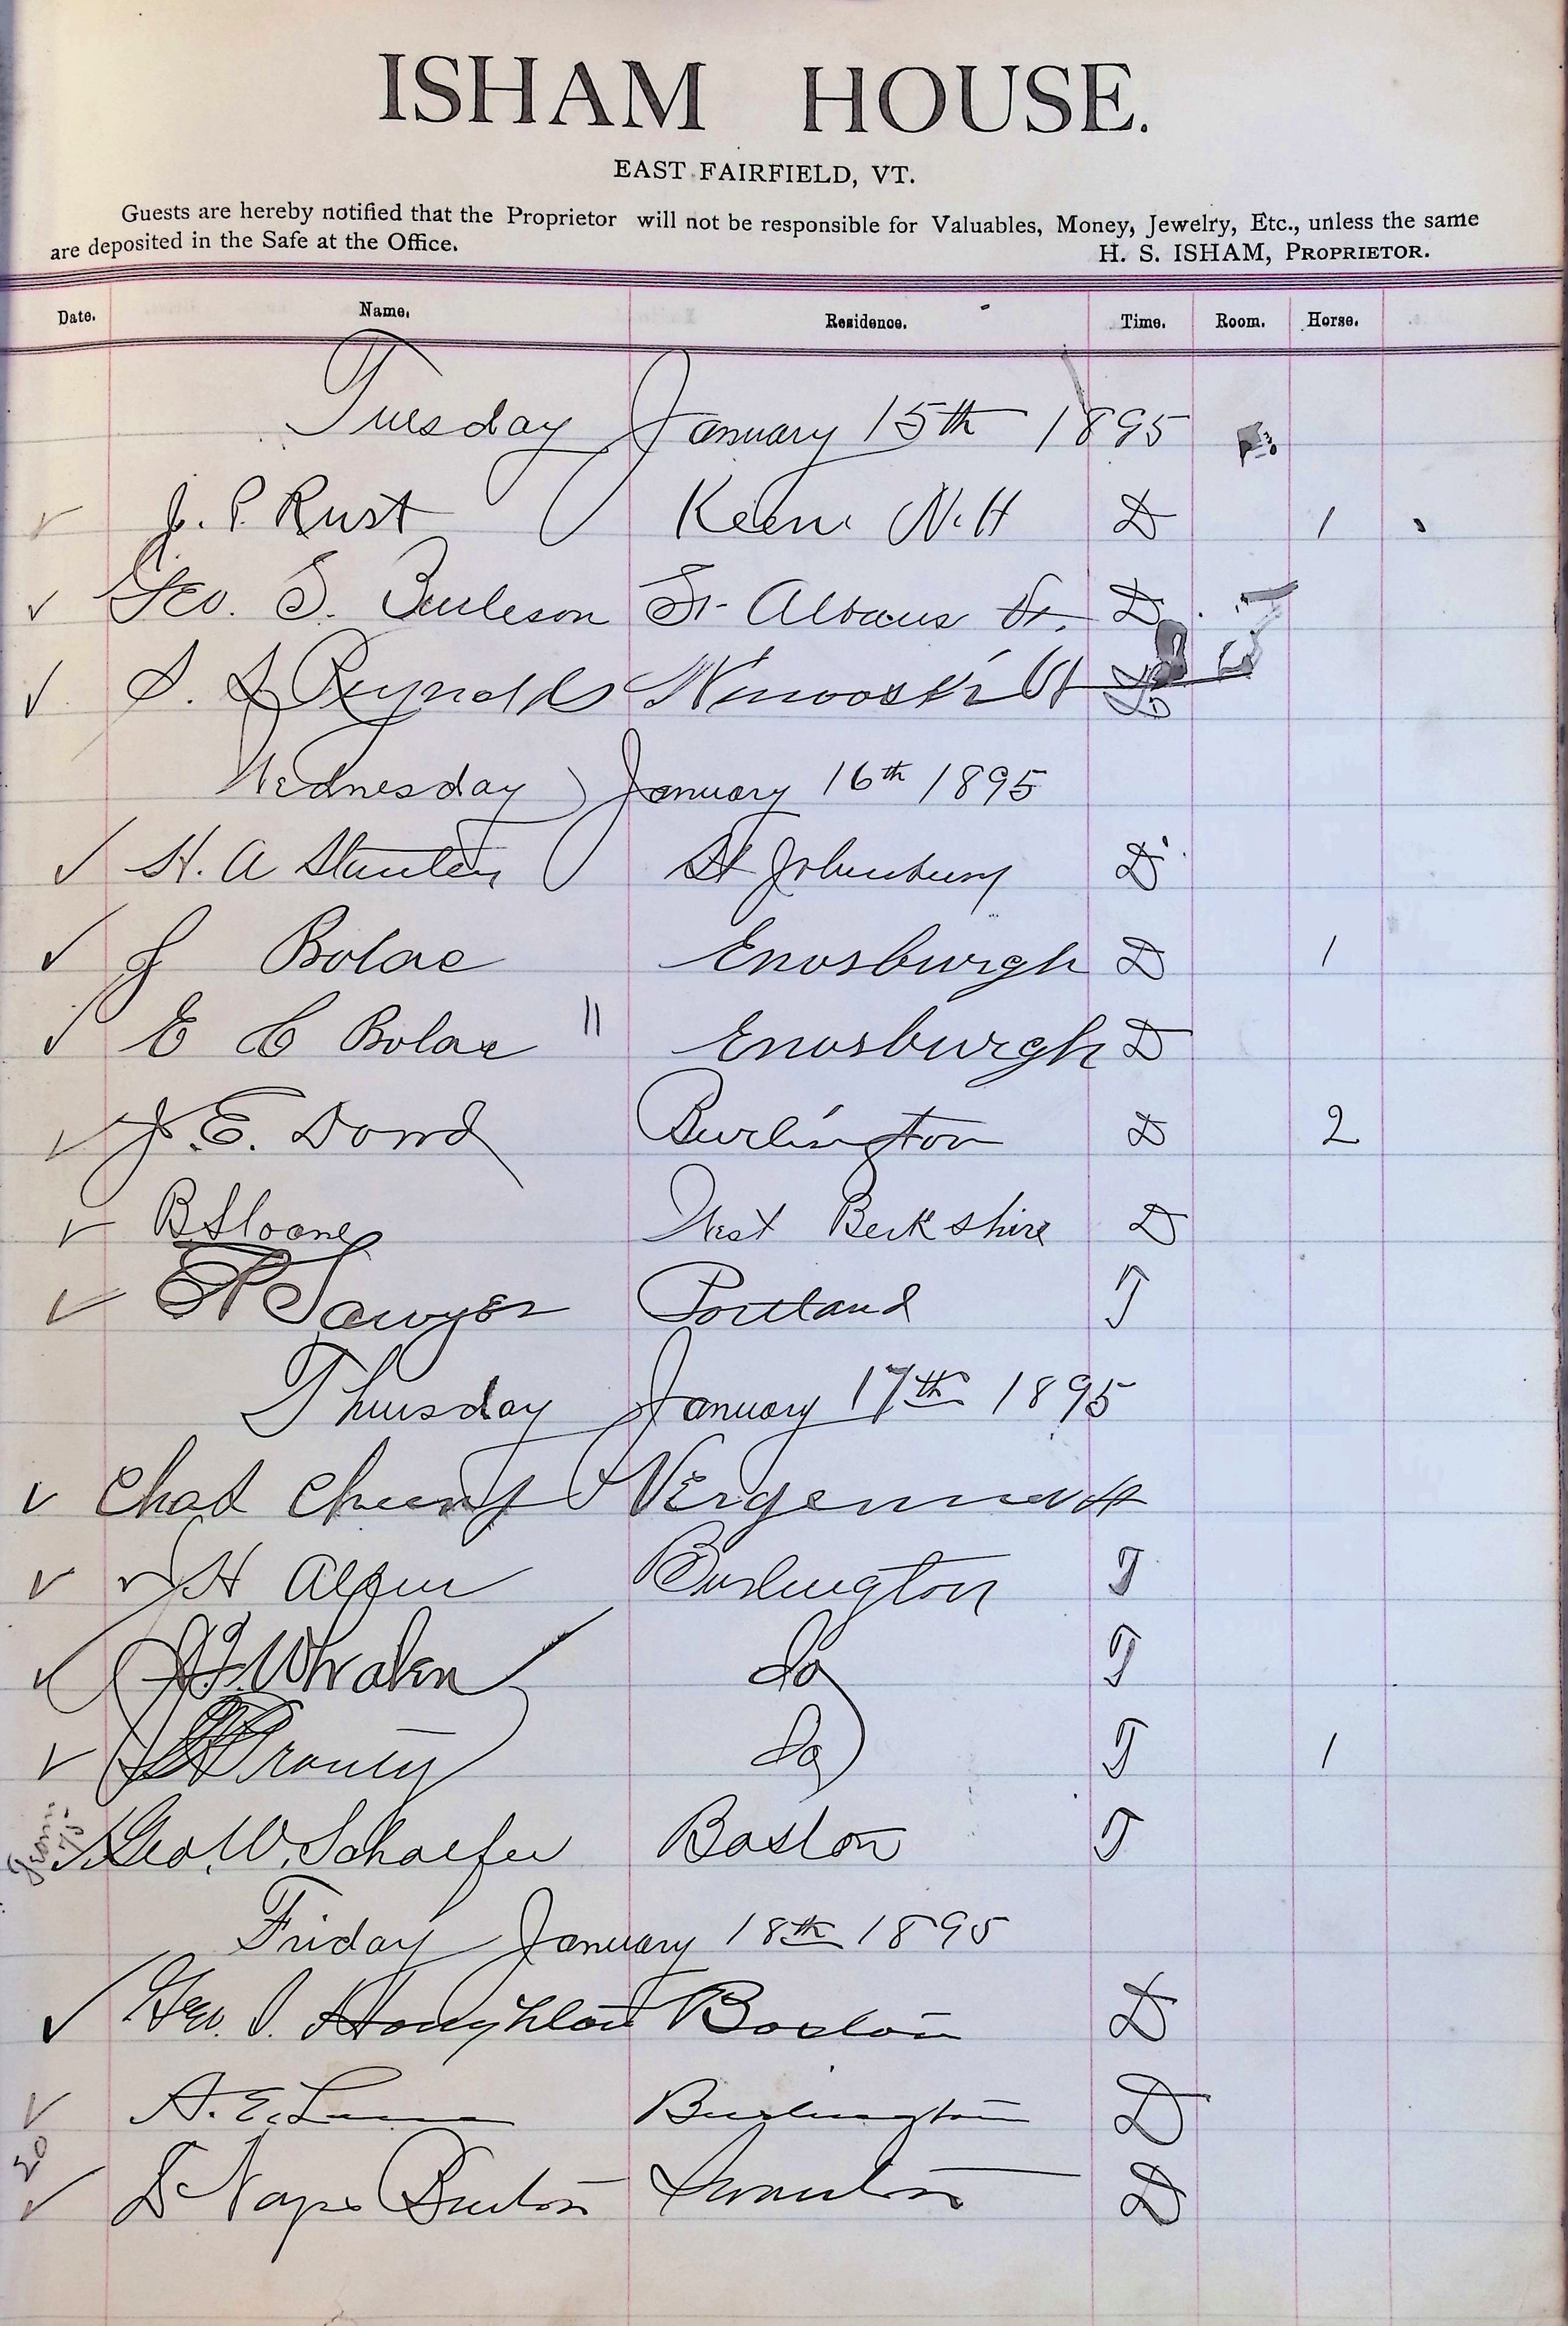 ISHAM HOUSE.
EAST FAIRFIELD, VT.
Guests are hereby notified that the Proprietor will not be responsible for Valuables, Money, Jewelry, Etc., unless the same
are deposited in the Safe at the Office.
H. S. ISHAM, PROPRIETOR.
Date. Name. Residence. Time. Room. Horse.
Tuesday January 15th 1895
J. P. Rust Keene N.H D 1
Geo. S. Burleson St Albans Vt. D
S. S Reynolds Winooski Vt
Wednesday January 16th 1895
H. A Stanley St Johnsbury D
J Bolac Enosburgh D 1
E C Bolac " Enosburgh D
J. E. Dowd Burlington D 2
B Sloane West Berkshire D
Sawyer Portland T
Thursday January 17th 1895
Chas Vergennes Vt
H Burlington T
J. F. Whalen do T
Prouty do T 1
Geo. W. Schaefer Boston T
Friday January 18th 1895
Geo. I. Houghton Boston D
A. E. Burlington D
20
Burton Swanton D